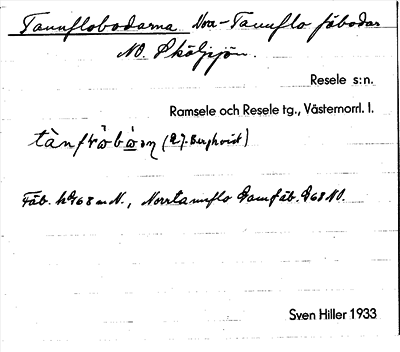 Tannflobodarna Norr-Tannflo fäbodar
NO. Sköljsjön.
Resele s:n.
Ramsele och Resele tg., Västernorrl. l.
(E.J. Bergkvist)
Fäb. h. 968 m N., Norrtannflo Gamfäb. 968 NO.
Sven Hiller 1933